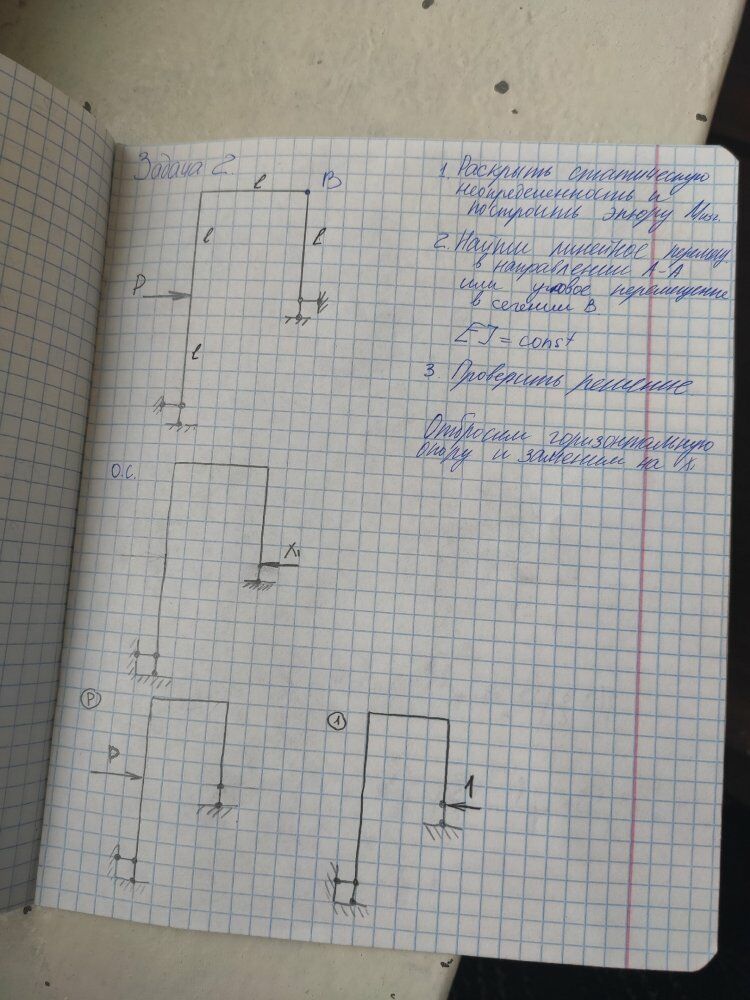 Задача 2.
l
B
l
l
P
l
1. Раскрыть статическую
неопределенность и
построить эпюру Mизг.
2. Найти линейное перемещ
в направлении A-A
или угловое перемещение
в сечении B
EJ = const
3. Проверить решение
Отбросим горизонтальную
опору и заменим на X
О.С.
X₁
P
P
1
1